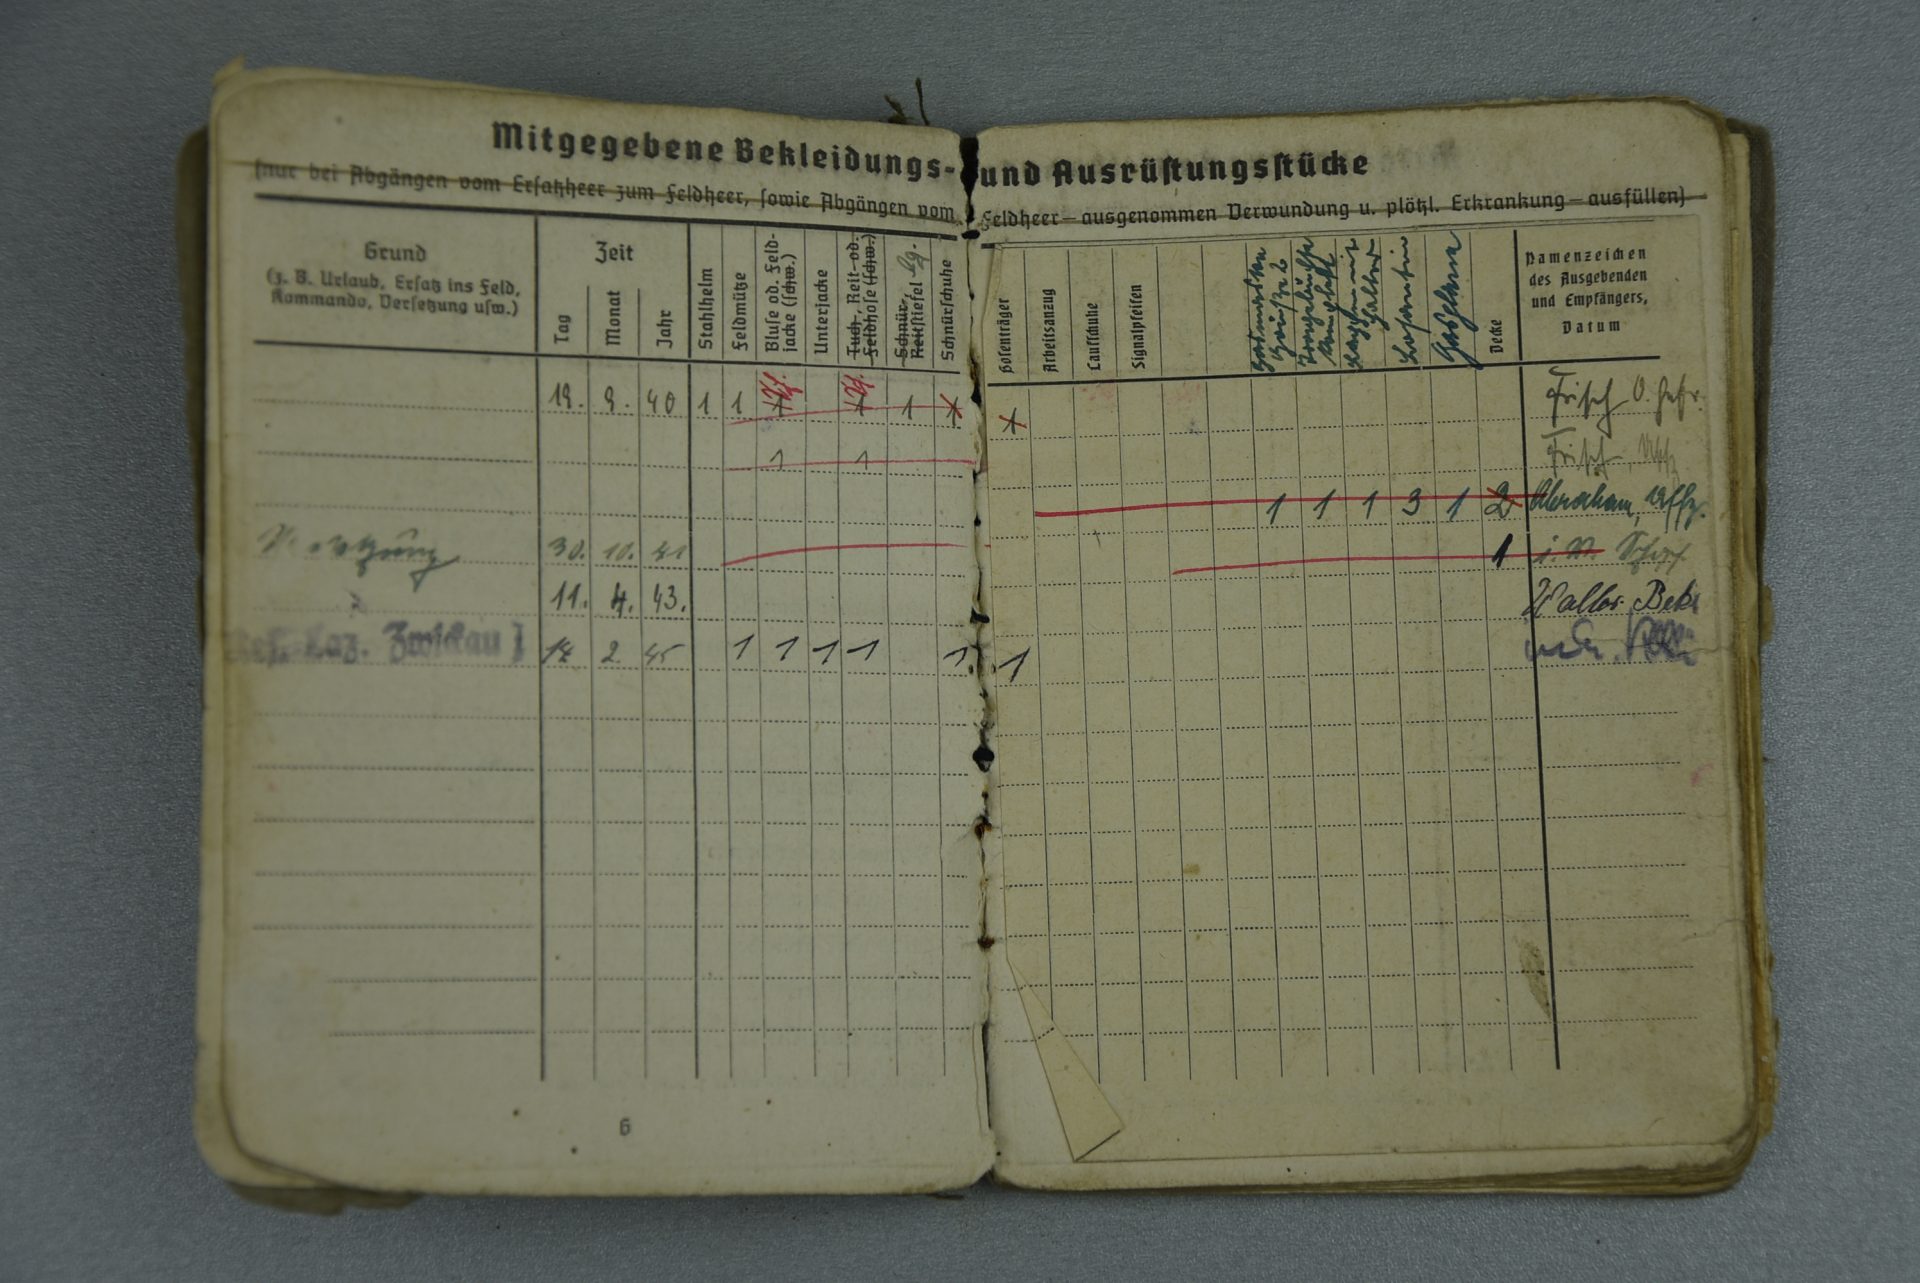 Mitgegebene Bekleidungs- und Ausrüstungsstücke
(nur bei Abgängen vom Ersatzheer zum Feldheer, sowie Abgängen vom Feldheer — ausgenommen Verwundung u. plötzl. Erkrankung — ausfüllen)
Grund
(z. B. Urlaub, Ersatz ins Feld,
Kommando, Versetzung usw.)
Zeit
Tag
Monat
Jahr
Stahlhelm
Feldmütze
Bluse od. Feld-
jacke (schw.)
Unterjacke
Tuch-, Reit- od.
Feldhose (schw.)
Schnür-,
Reitstiefel
Schnürschuhe
Hosenträger
Arbeitsanzug
Laufschuhe
Signalpfeifen
Decke
Namenzeichen
des Ausgebenden
und Empfängers,
Datum
19. 9. 40 1 1 1 Frisch O. Gefr.
1 1 Frisch, Uffz
1 1 1 3 1 2 Abraham, Uffz.
30. 10. 41 1
11. 4. 43.
Res. Laz. Zwickau I 2 45 1 1 1 1 1 1
6